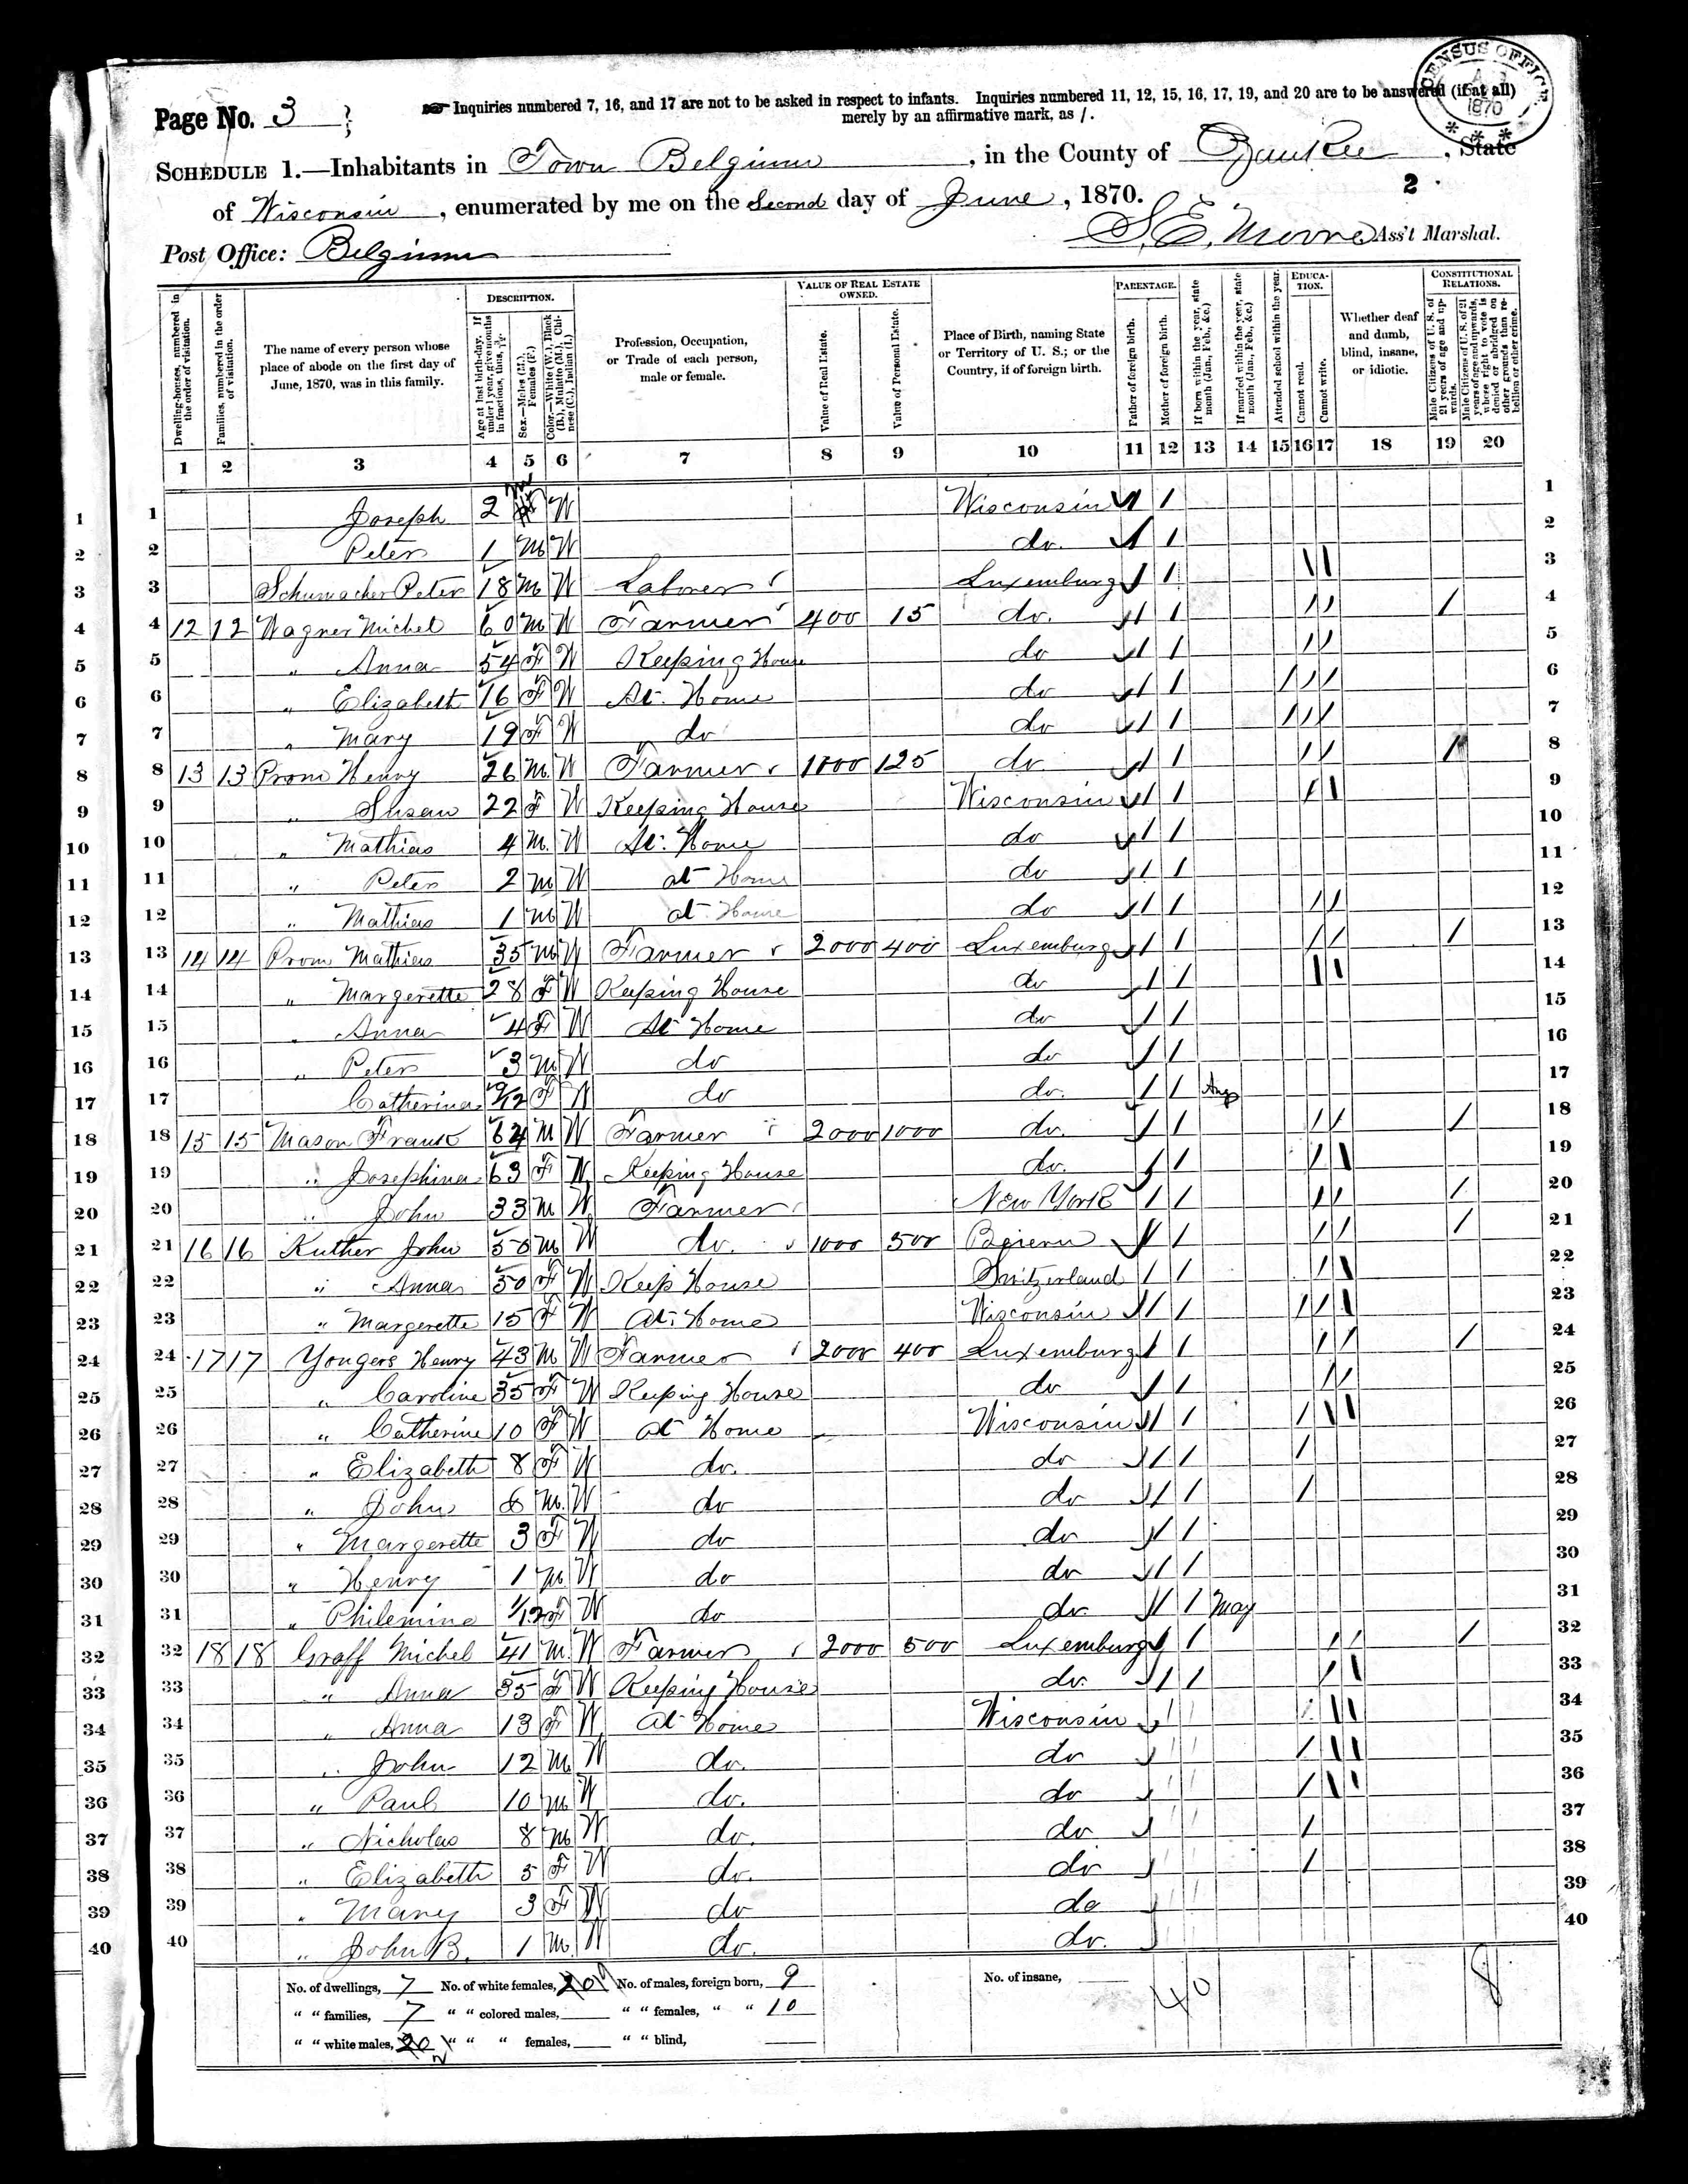 CENSUS OFFICE
1870
Page No. 3
Inquiries numbered 7, 16, and 17 are not to be asked in respect to infants. Inquiries numbered 11, 12, 15, 16, 17, 19, and 20 are to be answered (if at all)
merely by an affirmative mark, as /.
SCHEDULE 1.—Inhabitants in Town Belgium, in the County of Ozaukee, State
2
of Wisconsin, enumerated by me on the Second day of June, 1870.
Post Office: Belgium S. E. Moore Ass't Marshal.
Dwelling-houses, numbered in the order of visitation.
Families, numbered in the order of visitation.
The name of every person whose place of abode on the first day of June, 1870, was in this family.
DESCRIPTION.
Age at last birth-day. If under 1 year, give months in fractions, thus,
Sex.—Males (M.), Females (F.)
Color.—White (W.), Black (B.), Mulatto (M.), Chinese (C.), Indian (I.)
Profession, Occupation, or Trade of each person, male or female.
VALUE OF REAL ESTATE OWNED.
Value of Real Estate.
Value of Personal Estate.
Place of Birth, naming State or Territory of U. S.; or the Country, if of foreign birth.
PARENTAGE.
Father of foreign birth.
Mother of foreign birth.
If born within the year, state month (Jan., Feb., &c.)
If married within the year, state month (Jan., Feb., &c.)
Attended school within the year.
EDUCATION.
Cannot read.
Cannot write.
Whether deaf and dumb, blind, insane, or idiotic.
CONSTITUTIONAL RELATIONS.
Male Citizens of U. S. of 21 years of age and upwards.
Male Citizens of U. S. of 21 years of age and upwards, whose right to vote is denied or abridged on other grounds than rebellion or other crime.
1 2 3 4 5 6 7 8 9 10 11 12 13 14 15 16 17 18 19 20
1 Joseph 2 M W Wisconsin / / 1
2 Peter 1 M W do. / / 2
3 Schumacher Peter 18 M W Laborer Luxemburg / / / / 3
4 12 12 Wagner Michel 60 M W Farmer 400 15 do. / / / / / 4
5 " Anna 54 F W Keeping House do / / / / 5
6 " Elizabeth 16 F W At Home do / / / / / 6
7 " Mary 19 F W do do / / / / / 7
8 13 13 Prom Henry 26 M W Farmer 1000 125 do / / / / / 8
9 " Susan 22 F W Keeping House Wisconsin / / / / 9
10 " Mathias 4 M. W At Home do / / 10
11 " Peter 2 M W at Home do / / 11
12 " Mathias 1 M W at Home do / / / / 12
13 14 14 Prom Mathias 35 M W Farmer 2000 400 Luxemburg / / / / / 13
14 " Margerette 28 F W Keeping House do / / / / 14
15 " Anna 4 F W At Home do / / 15
16 " Peter 3 M W do do / / 16
17 Catherina 9/12 F W do do. / / Aug 17
18 15 15 Mason Frank 64 M W Farmer 2000 1000 do. / / / / / 18
19 " Josephina 63 F W Keeping House do. / / / / 19
20 " John 33 M W Farmer New York / / / / / 20
21 16 16 Kuther John 50 M W do. 1000 500 Beiern / / / / / 21
22 " Anna 50 F W Keep House Switzerland / / / / 22
23 " Margerette 15 F W At Home Wisconsin / / / / / 23
24 17 17 Yongers Henry 43 M W Farmer 2000 400 Luxemburg / / / / / 24
25 " Caroline 35 F W Keeping House do / / / / 25
26 " Catherine 10 F W At Home Wisconsin / / / / / 26
27 " Elizabeth 8 F W do. do / / / 27
28 " John 6 M. W do do / / / 28
29 " Margerette 3 F W do do / / 29
30 " Henry 1 M W do do / / 30
31 " Philemina 1/12 F W do do / / May 31
32 18 18 Graff Michel 41 M. W Farmer 2000 500 Luxemburg / / / / / 32
33 " Anna 35 F W Keeping House do. / / / / 33
34 " Anna 13 F W At Home Wisconsin / / / / / 34
35 " John 12 M. W do. do / / / / / 35
36 " Paul 10 M W do. do / / / / / 36
37 " Nicholas 8 M W do. do / / / 37
38 " Elizabeth 5 F W do. do / / / 38
39 " Mary 3 F W do do / / 39
40 " John B. 1 M. W do. do. 40
No. of dwellings, 7 No. of white females, 20 No. of males, foreign born, 9 No. of insane,
" " families, 7 " " colored males, " " females, " " 10
" " white males, 20 " " " females, " " blind,
40 8